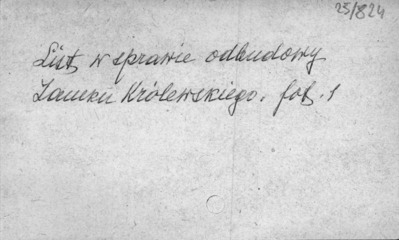 25/824
List w sprawie odbudowy
Zamku Królewskiego. fot. 1